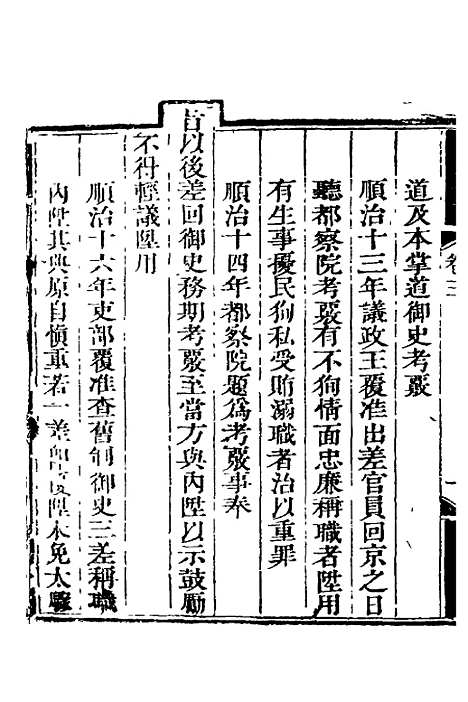 卷三
道及本掌道御史考覈
順治十三年議政王覆准出差官員回京之日
聽都察院考覈有不狥情面忠廉稱職者陞用
有生事擾民狥私受賄溺職者治以重罪
順治十四年都察院題爲考覈事奉
旨以後差回御史務期考覈至當方與內陞以示鼓勵
不得輕議陞用
順治十六年吏部覆准查舊制御史三差稱職
內陞其典原自愼重若一差卽陞未免太驟